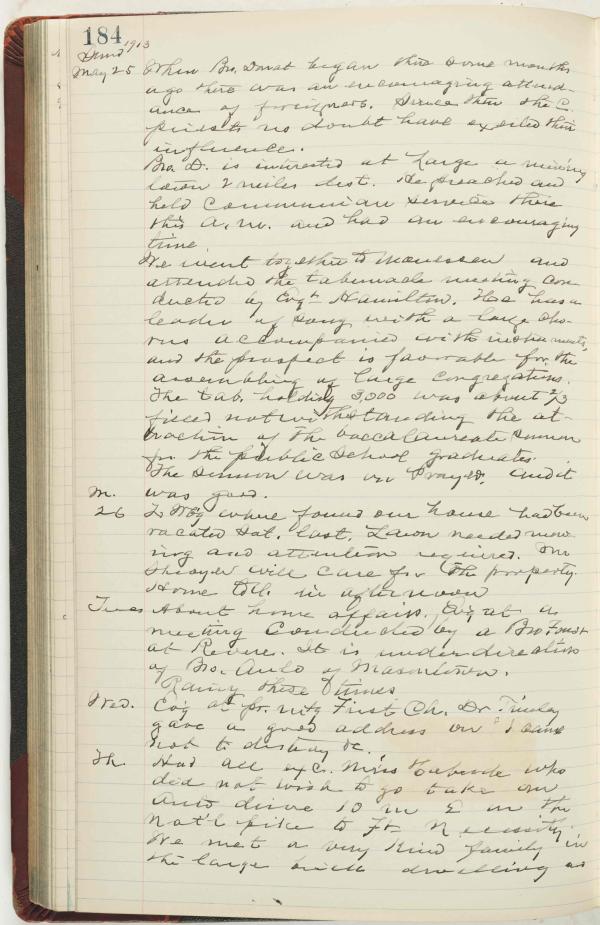 184
1913
May 25 When Bro. Donat began there some months
ago there was an encouraging attend-
ance of foreigners. Since then the C.
priests no doubt have exerted their
influence.
Bro. D. is interested at Large a mining
town 2 miles dist. He preached and
held Communion service there
this A.M. and had an encouraging
time.
We went together to Monessen and
attended the tabernacle meeting con-
ducted by Evgt Hamilton. He has a
leader of song with a large cho-
rus accompanied with instruments,
and the prospect is favorable for the
assembling of large congregations.
The tab. holding 3,000 was about 2/3
filled notwithstanding the at-
traction of the baccalaureate sermon
for the public School graduates.
The sermon was on Prayer. and it
M. was good.
26 To where found our house had been
vacated Sat. last. Lawn needed mow-
ing and attention required. Mr
will care for the property.
Home in afternoon
Tues About home affairs. Evg at a
meeting conducted by a Bro.
at Revere. It is under direction
of Bro. Auld of Masontown.
Rainy these times
Wed. Evg at pr. mtg First Ch. Dr.
gave a good address on "I came
not to destroy &c.
Th. Had all exc. Miss who
did not wish to go take an
Auto drive 10 m E on the
Nat'l pike to Ft Necessity.
We met a very kind family in
the large brick dwelling as